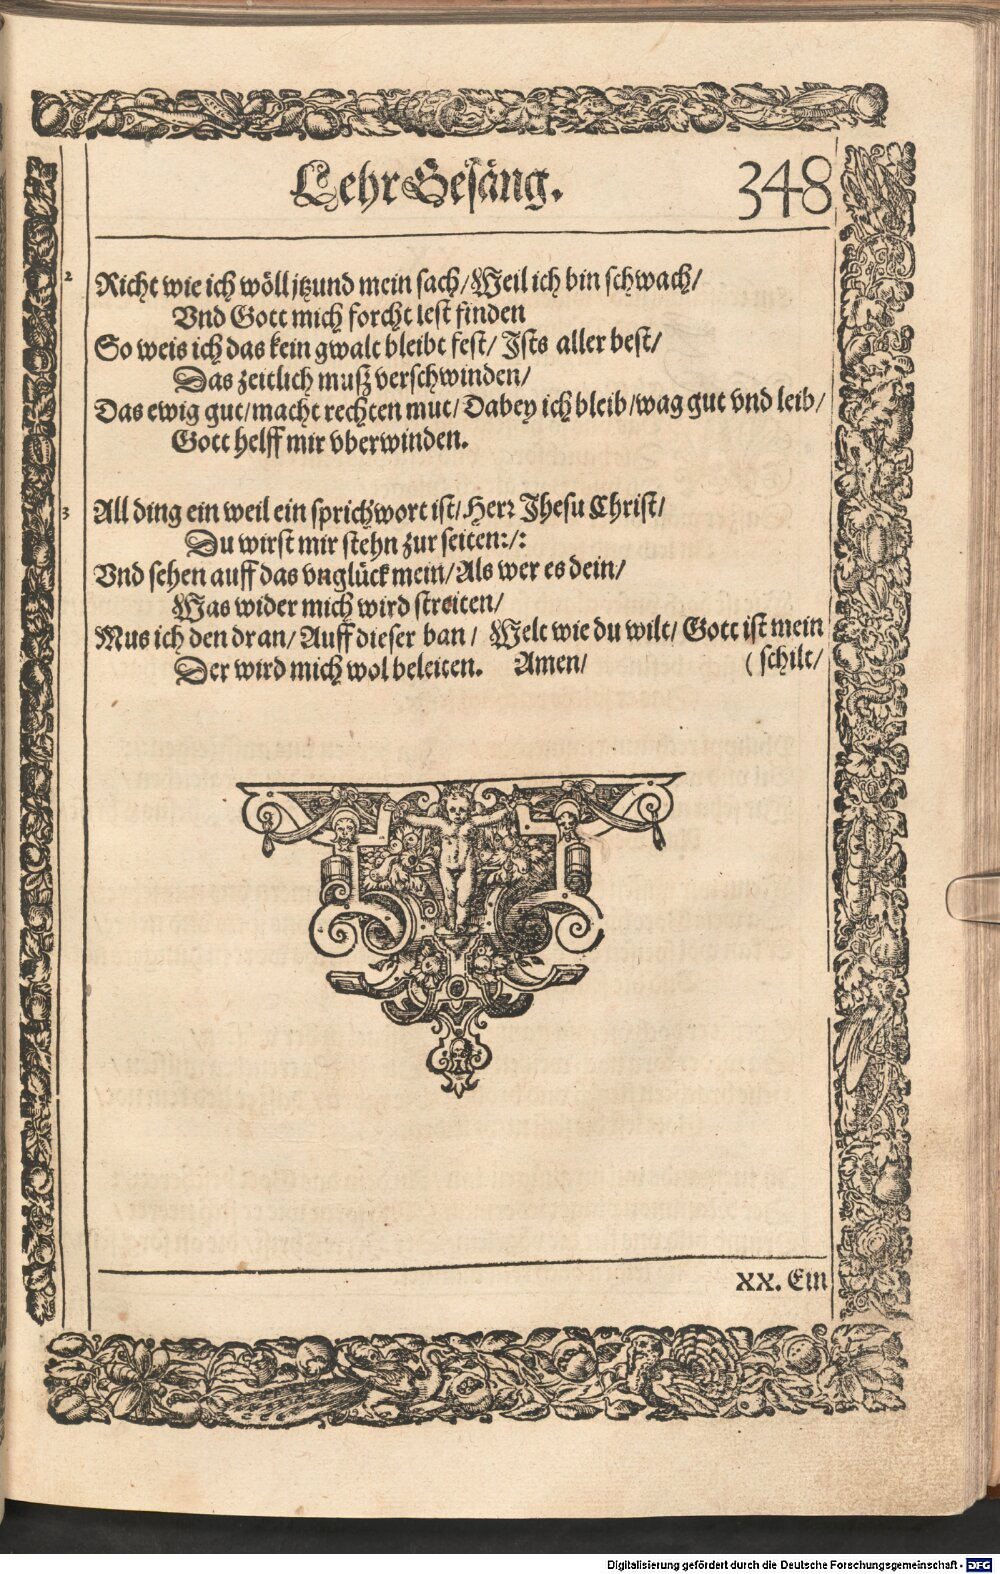 LehrGesäng. 348
2 Richt wie ich wöll jtzund mein sach/Weil ich bin schwach/
Vnd Gott mich forcht lest finden
So weis ich das kein gwalt bleibt fest/ Ists aller best/
Das zeitlich muß verschwinden/
Das ewig gut/macht rechten mut/Dabey ich bleib/wag gut vnd leib/
Gott helff mir vberwinden.
3 All ding ein weil ein sprichwort ist/Herr Jhesu Christ/
Du wirst mir stehn zur seiten:/:
Vnd sehen auff das vnglück mein/Als wer es dein/
Was wider mich wird streiten/
Mus ich den dran/Auff dieser ban/ Welt wie du wilt/Gott ist mein
Der wird mich wol beleiten. Amen/ (schilt/
XX. Ein
Digitalisierung gefördert durch die Deutsche Forschungsgemeinschaft - DFG